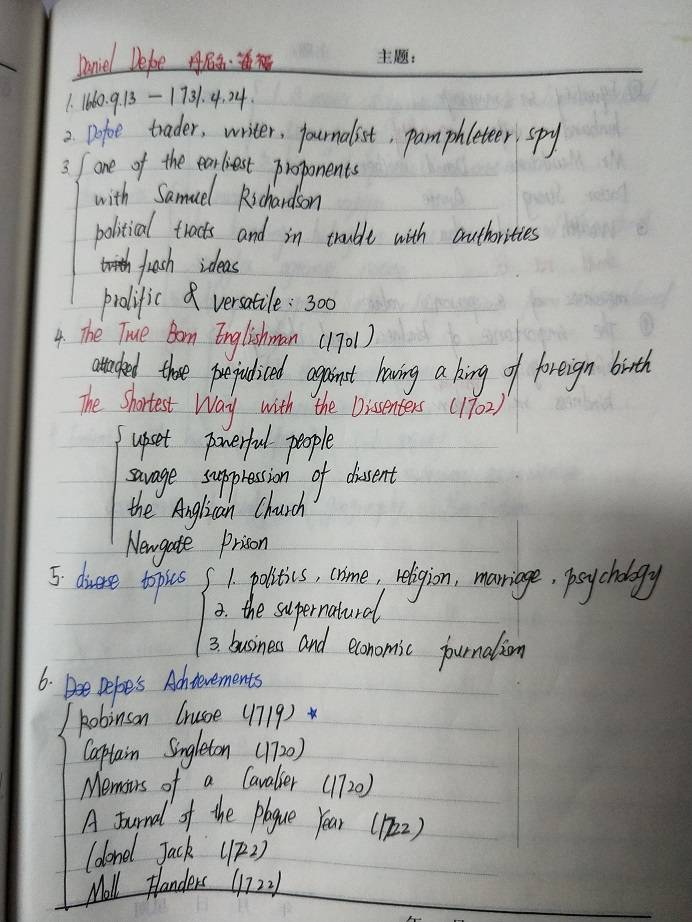 Daniel Defoe 丹尼尔·笛福 主题:
1. 1660.9.13 - 1731.4.24.
2. Defoe trader, writer, journalist, pamphleteer, spy
3. one of the earliest proponents
with Samuel Richardson
political tracts and in trouble with authorities
fresh ideas
prolific & versatile: 300
4. The True Born Englishman (1701)
attacked those prejudiced against having a king of foreign birth
The Shortest Way with the Dissenters (1702)
upset powerful people
savage suppression of dissent
the Anglican Church
Newgate Prison
5. diverse topics 1. politics, crime, religion, marriage, psychology
2. the supernatural
3. business and economic journalism
6. Defoe's Achievements
Robinson Crusoe (1719) ★
Captain Singleton (1720)
Memoirs of a Cavalier (1720)
A Journal of the Plague Year (1722)
Colonel Jack (1722)
Moll Flanders (1722)